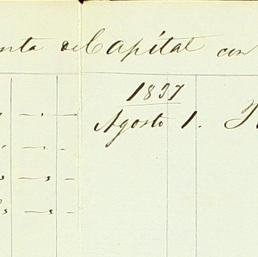 nta de Capital con
1837
Agosto 1.